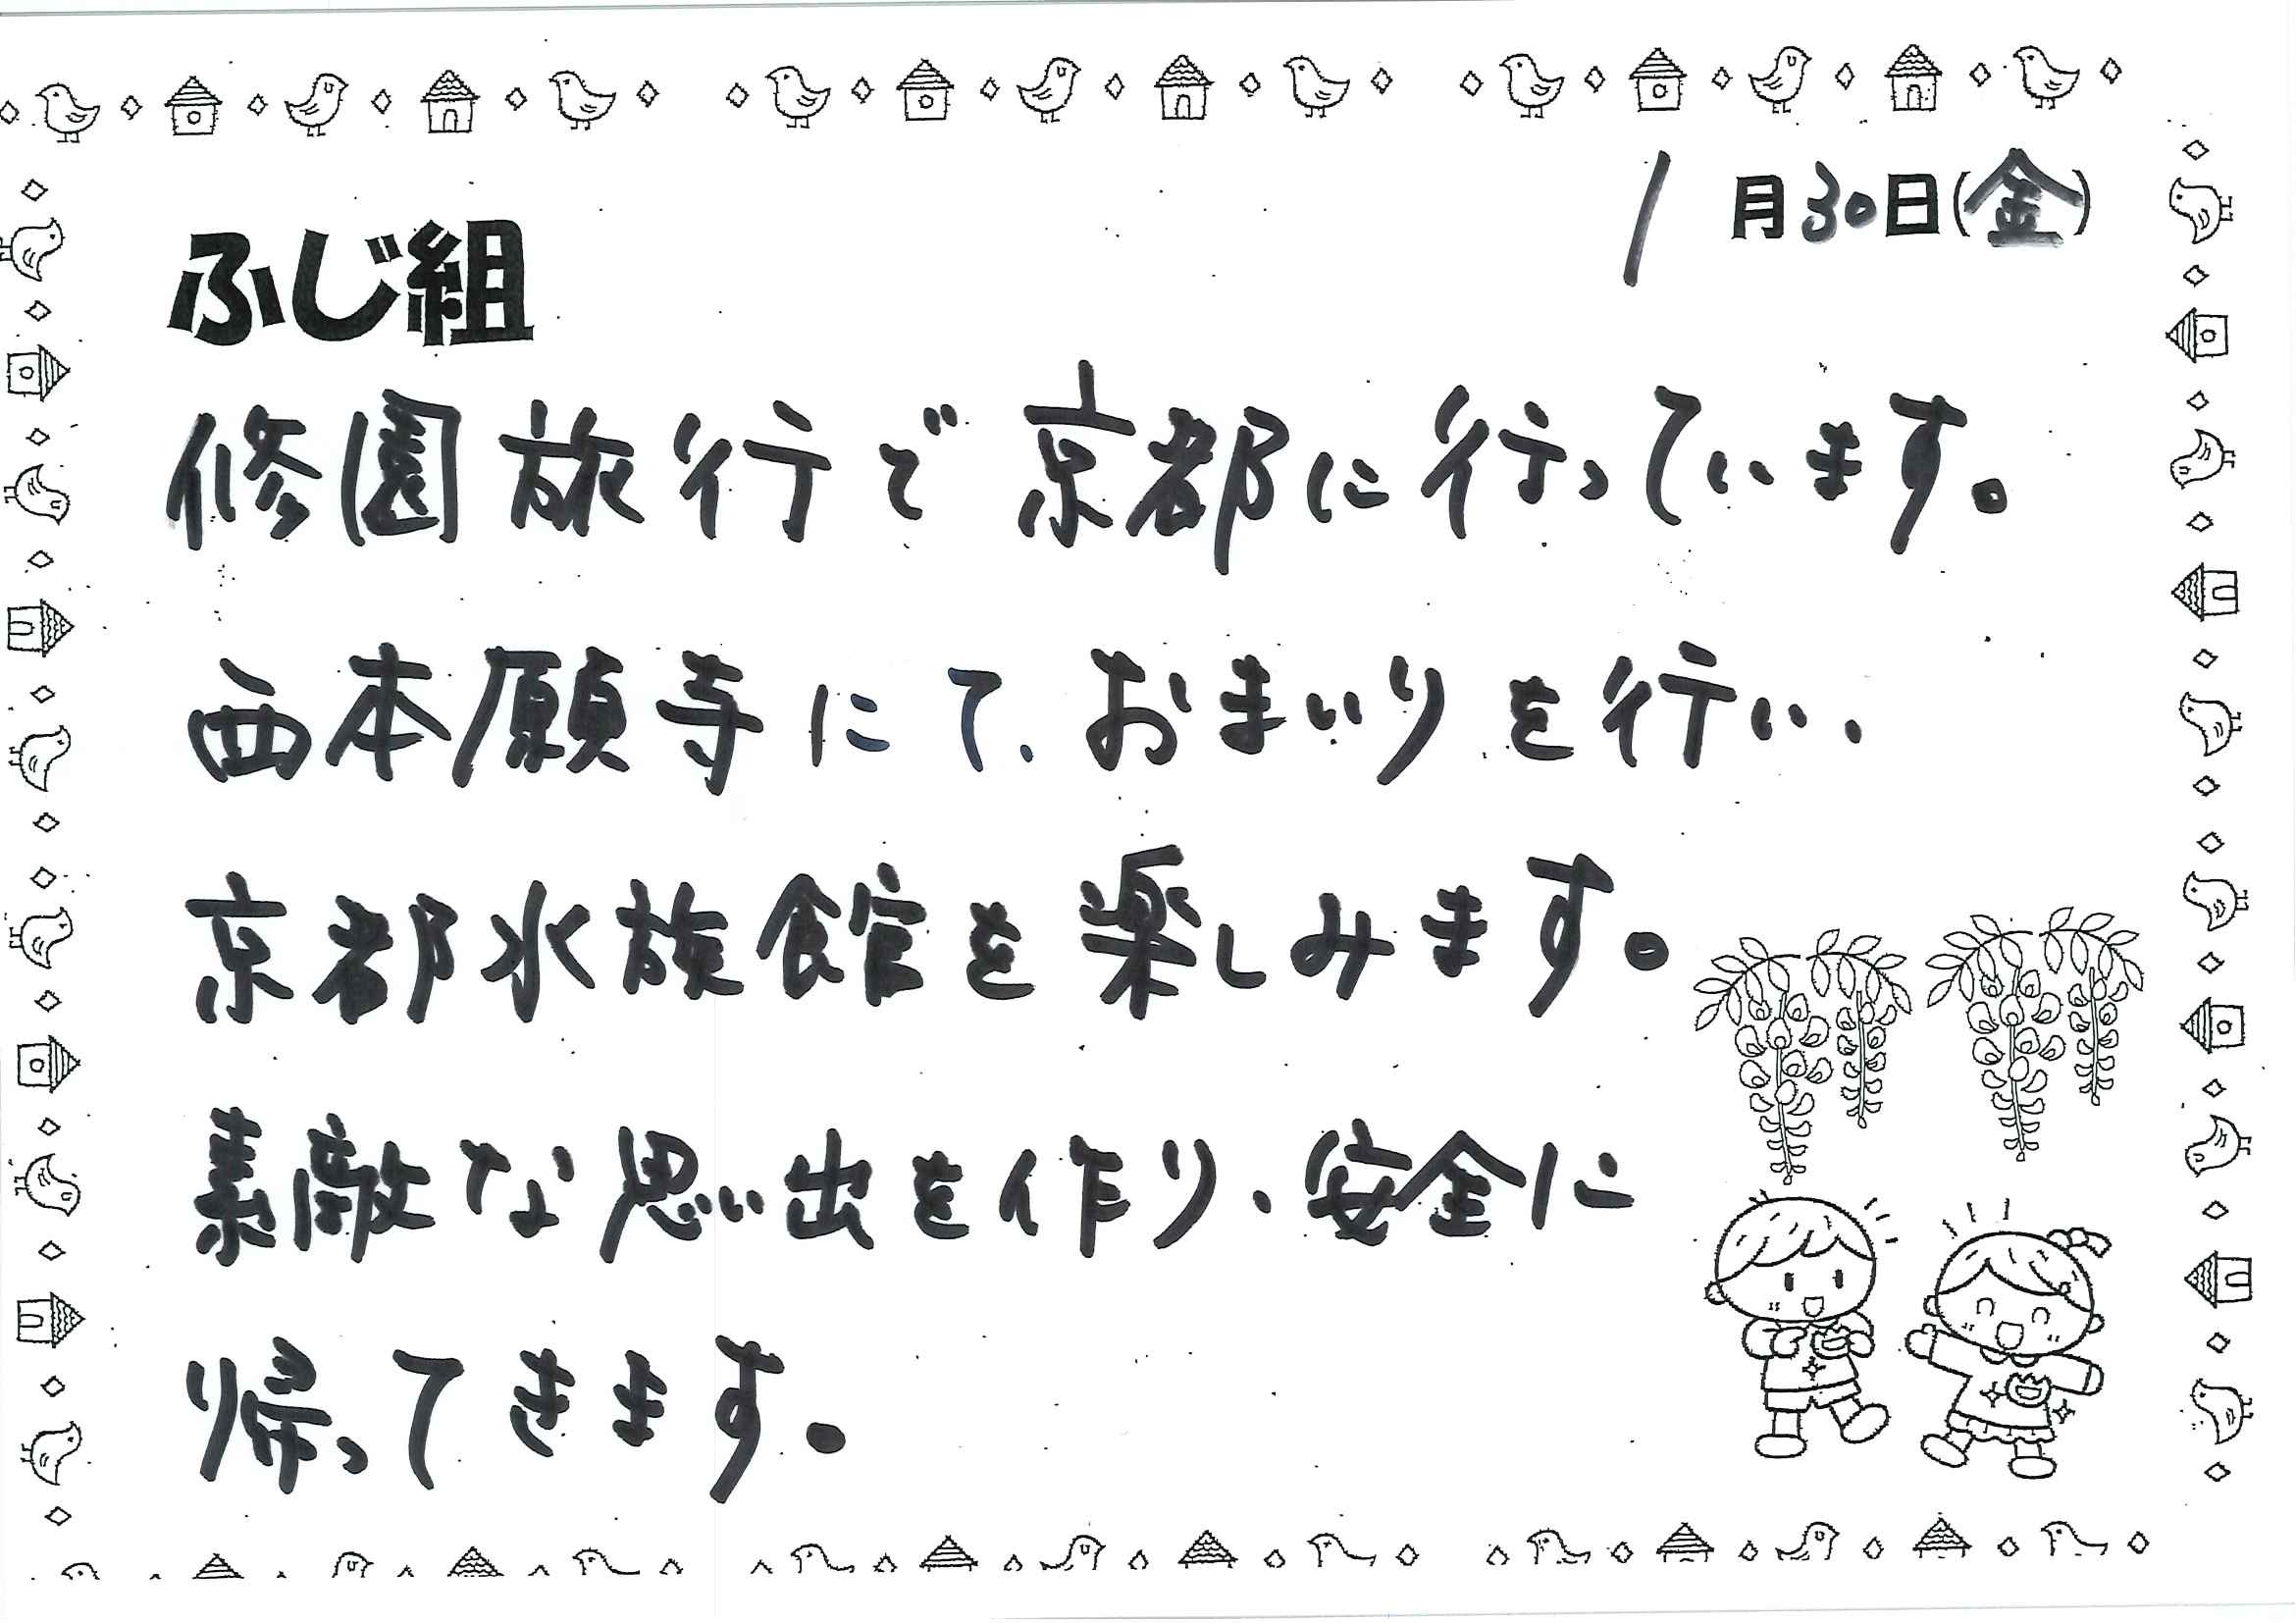 1月30日(金)
ふじ組
修園旅行で京都に行っています。
西本願寺にて、おまいりを行い、
京都水族館を楽しみます。
素敵な思い出を作り、安全に
帰ってきます。